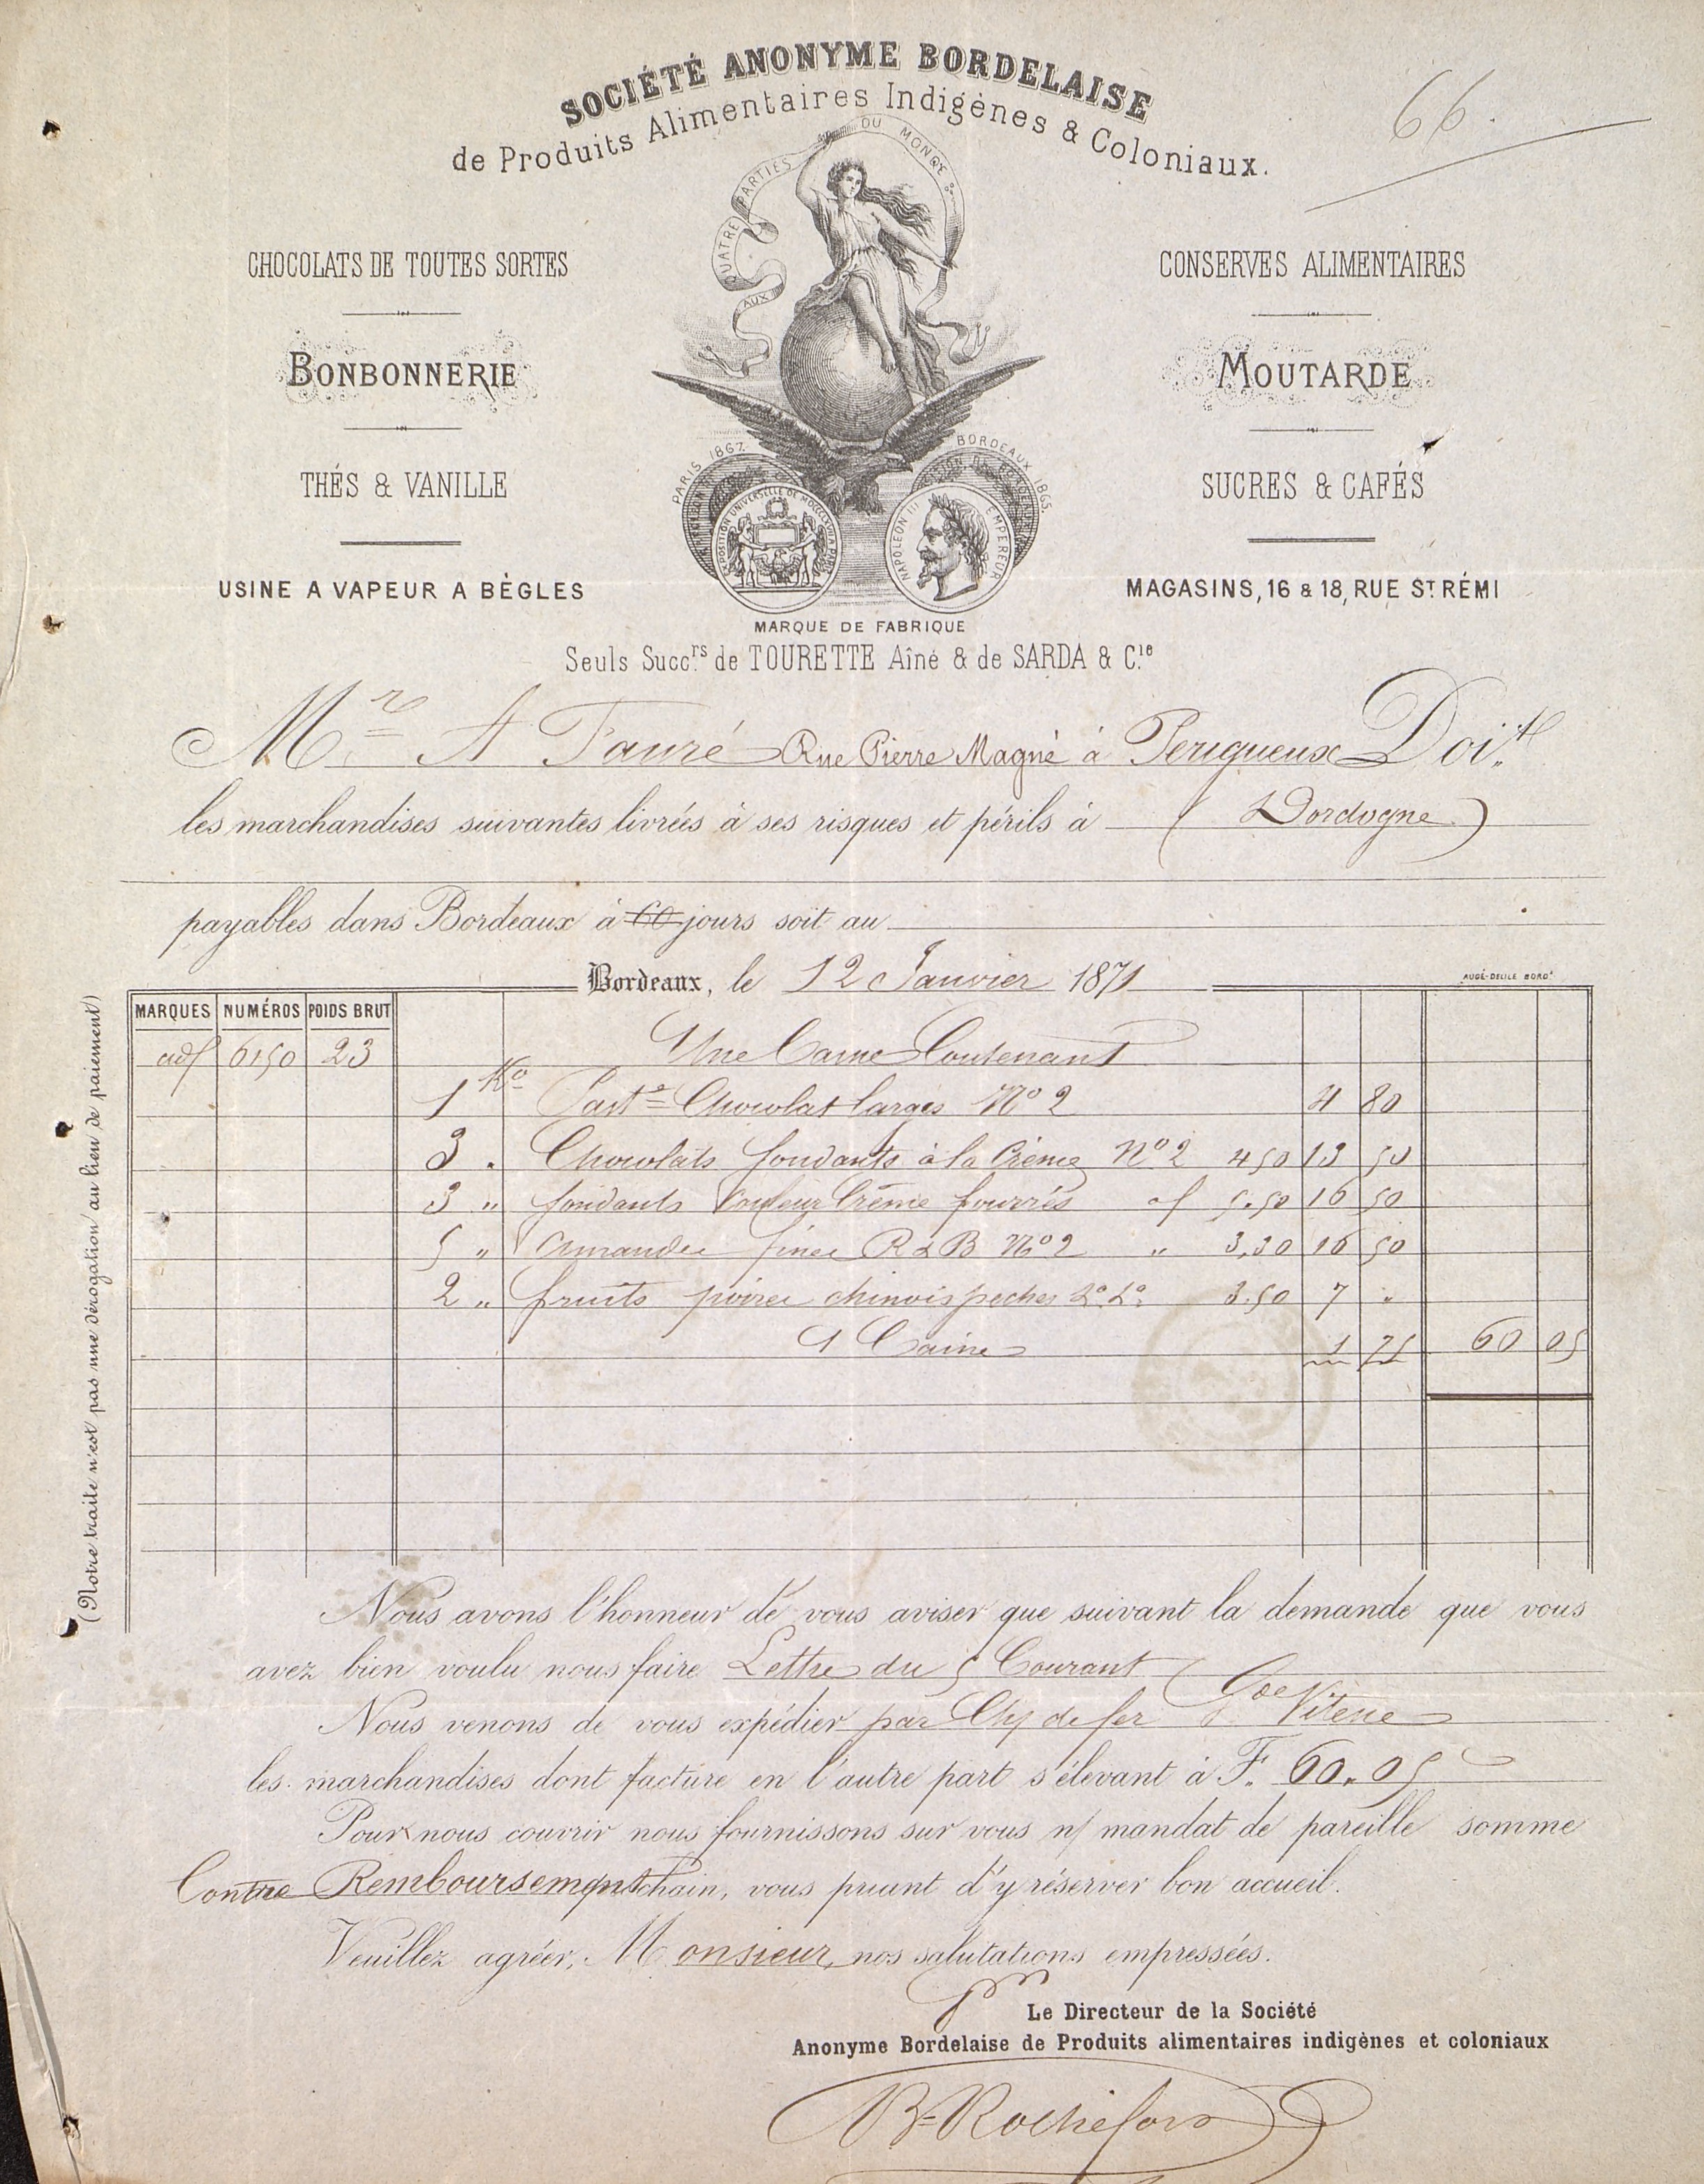 SOCIÉTÉ ANONYME BORDELAISE
de Produits Alimentaires Indigènes & Coloniaux.
66.
AUX QUATRE PARTIES DU MONDE
CHOCOLATS DE TOUTES SORTES
BONBONNERIE
THÉS & VANILLE
USINE A VAPEUR A BÈGLES
CONSERVES ALIMENTAIRES
MOUTARDE
SUCRES & CAFÉS
MAGASINS, 16 & 18, RUE St RÉMI
PARIS 1867.
BORDEAUX 1865.
EXPOSITION UNIVERSELLE DE MDCCCLXVII A PARIS
NAPOLEON III EMPEREUR
MARQUE DE FABRIQUE
Seuls Succrs de TOURETTE Aîné & de SARDA & Cie
Mr A Fauré Rue Pierre Magne à Perigueux Doit
les marchandises suivantes livrées à ses risques et périls à (Dordogne)
payables dans Bordeaux à 60 jours soit au
Bordeaux, le 12 Janvier 1871
AUGÉ-DELILE BORDx
MARQUES NUMÉROS POIDS BRUT
adf 6150 23 Une Caisse Contenant
1 Ko Past Chocolat larges No 2 4 80
3 " Chocolats fondants à la Crème No 2 4 50 13 50
3 " fondants Crème fourrés 5.50 16 50
5 " Amandes fines R & B No 2 " 3,30 16 50
2 " fruits poires chinois peches 3.50 7 "
1 Caisse 1 75 60 05
(Notre traite n'est pas une dérogation au lieu de paiement)
Nous avons l'honneur de vous aviser que suivant la demande que vous
avez bien voulu nous faire Lettre du 5 Courant
Nous venons de vous expédier par Ch de fer Gde Vitesse
les marchandises dont facture en l'autre part s'élevant à F. 60.05
Pour nous couvrir nous fournissons sur vous n/ mandat de pareille somme
Contre Remboursement chain, vous priant d'y réserver bon accueil.
Veuillez agréer, Monsieur, nos salutations empressées.
Pr Le Directeur de la Société
Anonyme Bordelaise de Produits alimentaires indigènes et coloniaux
B Rochefort